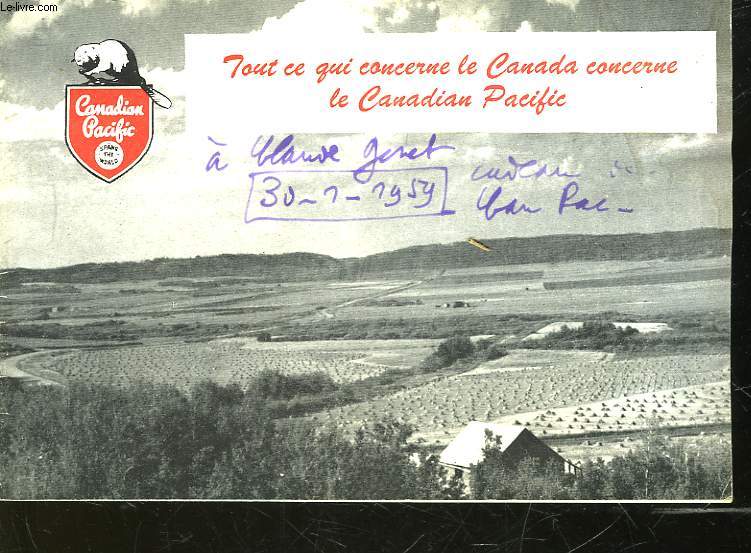 Le-livre.com
Tout ce qui concerne le Canada concerne
le Canadian Pacific
Canadian
Pacific
SPANS
THE
WORLD
à Claude Genet
30-1-1959
cadeau
Can Pac-